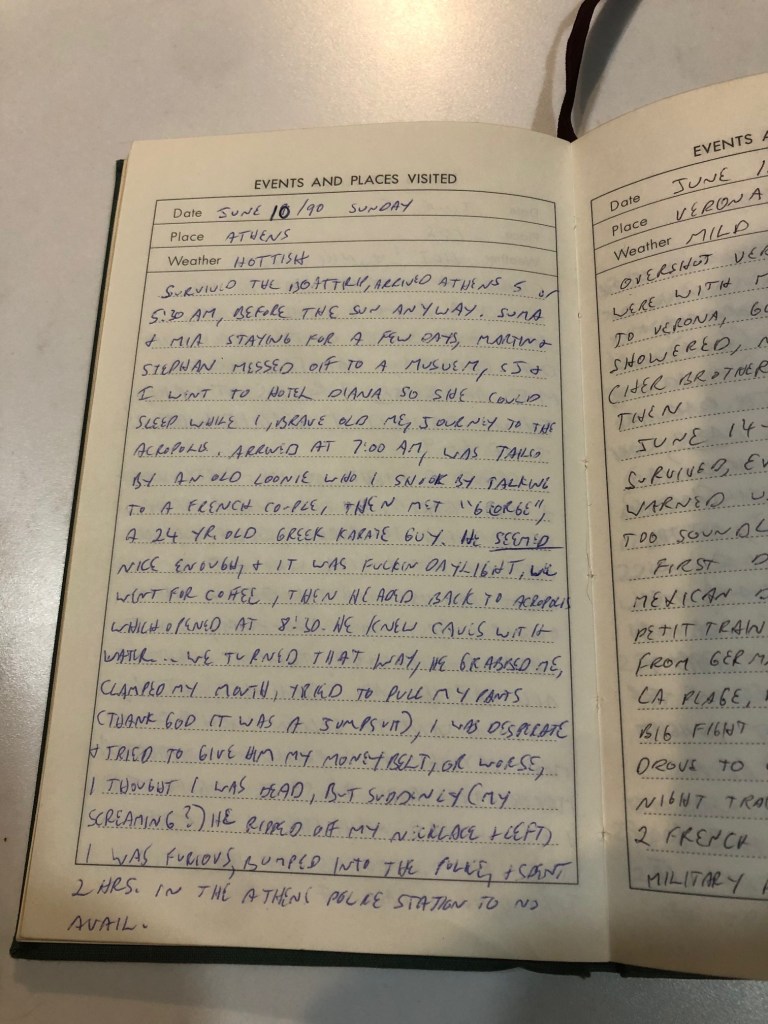 EVENTS AND PLACES VISITED
Date JUNE 10/90 SUNDAY
Place ATHENS
Weather HOTTISH
SURVIVED THE BOATTRIP, ARRIVED ATHENS 5 or
5:30 AM, BEFORE THE SUN ANYWAY. SUMA
& MIA STAYING FOR A FEW DAYS, MARTIN &
STEPHAN MESSED OFF TO A MUSUEM, CJ &
I WENT TO HOTEL DIANA SO SHE COULD
SLEEP WHILE I, BRAVE OLD ME, JOURNEY TO THE
ACROPOLIS. ARRIVED AT 7:00 AM, WAS TAILED
BY AN OLD LOONIE WHO I SNOOK BY TALKING
TO A FRENCH COUPLE, THEN MET "GEORGE",
A 24 YR. OLD GREEK KARATE GUY. HE SEEMED
NICE ENOUGH, & IT WAS FUCKIN DAYLIGHT, WE
WENT FOR COFFEE, THEN HEADED BACK TO ACROPOLIS
WHICH OPENED AT 8:30. HE KNEW CAVES WITH
WATER... WE TURNED THAT WAY, HE GRABBED ME,
CLAMPED MY MOUTH, TRIED TO PULL MY PANTS
(THANK GOD IT WAS A JUMPSUIT), I WAS DESPERATE
& TRIED TO GIVE HIM MY MONEY BELT, OR WORSE,
I THOUGHT I WAS DEAD, BUT SUDDENLY (MY
SCREAMING?) HE RIPPED OFF MY NECKLACE & LEFT)
I WAS FURIOUS, BUMPED INTO THE POLICE, & SPENT
2 HRS. IN THE ATHENS POLICE STATION TO NO
AVAIL.
EVENTS
Date JUNE
Place VERONA
Weather MILD
OVERSHOT
WERE WITH
TO VERONA,
SHOWERED,
BROTHER
THEN
JUNE 14-
SURVIVED,
WARNED
TOO
FIRST
MEXICAN
PETIT TRAIN
FROM
LA PLAGE,
BIG FIGHT
DROVE TO
NIGHT
2 FRENCH
MILITARY